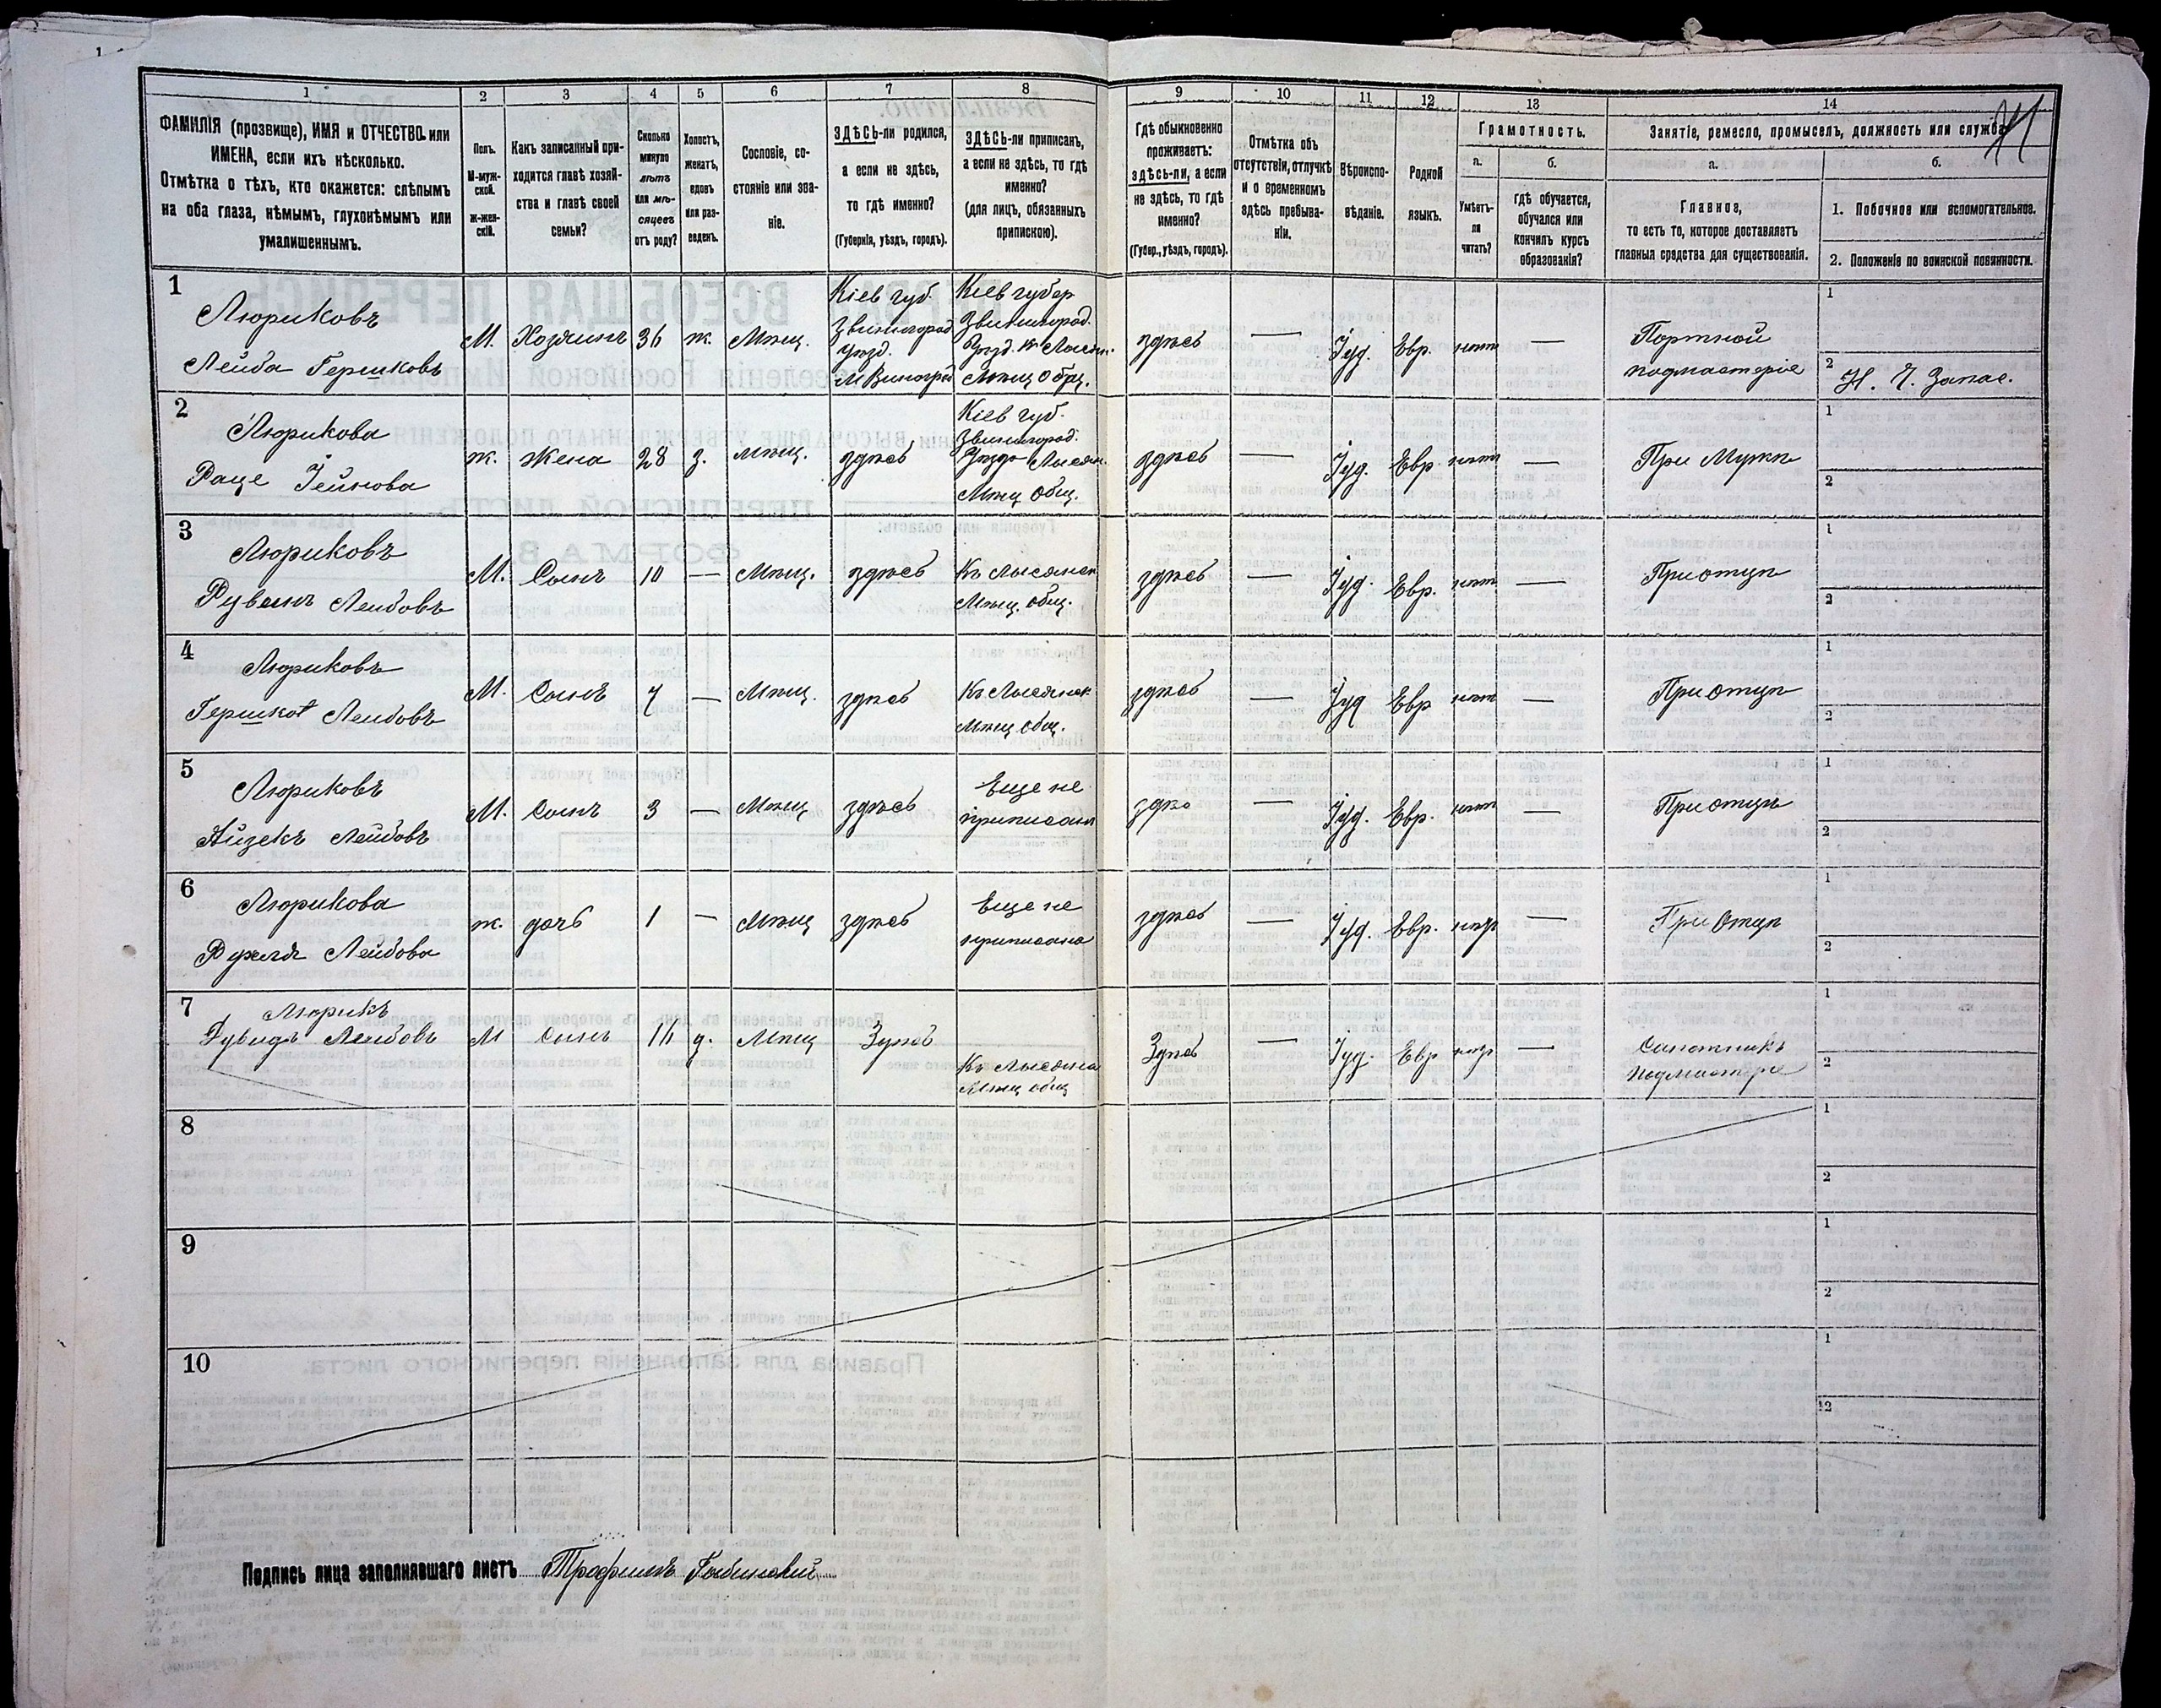 1
2
3
4
5
6
7
8
9
10
11
12
13
14
ФАМИЛІЯ (прозвище), ИМЯ и ОТЧЕСТВО или
ИМЕНА, если ихъ нѣсколько.
Отмѣтка о тѣхъ, кто окажется: слѣпымъ
на оба глаза, нѣмымъ, глухонѣмымъ или
умалишеннымъ.
Полъ.
М-муж-
ской.
Ж-жен-
скій.
Какъ записанный при-
ходится главѣ хозяй-
ства и главѣ своей
семьи?
Сколько
минуло
лѣтъ
или мѣ-
сяцевъ
отъ роду?
Холостъ,
женатъ,
вдовъ
или раз-
веденъ.
Сословіе, со-
стояніе или зва-
ніе.
ЗДѢСЬ-ли родился,
а если не здѣсь,
то гдѣ именно?
(Губернія, уѣздъ, городъ).
ЗДѢСЬ-ли приписан,
а если не здѣсь, то гдѣ
именно?
(для лицъ, обязанныхъ
припискою).
Гдѣ обыкновенно
проживаетъ:
здѣсь-ли, а если
не здѣсь, то гдѣ
именно?
(Губер., уѣздъ, городъ).
Отмѣтка объ
отсутствіи, отлучкѣ
и о временномъ
здѣсь пребыва-
ніи.
Вѣроиспо-
вѣданіе.
Родной
языкъ.
Грамотность.
а.
Умѣетъ-
ли
читать?
б.
гдѣ обучается,
обучался или
кончилъ курсъ
образованія?
Занятіе, ремесло, промыселъ, должность или служба.
а.
Главное,
то есть то, которое доставляетъ
главныя средства для существованія.
б.
1. Побочное или вспомогательное.
2. Положеніе по воинской повинности.
1
Люриковъ
Лейба Гершковъ
М.
Хозяинъ
36
ж.
Мѣщ.
Кіев губ.
Звенигород
уѣзд.
М Виноград
Кіев губер
Звенигород.
Уѣзд. Къ Лысян.
Мѣщ Общ.
здѣсь
—
Іуд.
Евр.
нѣт
—
Портной
подмастеріе
1
2
Н. Ч. Запас.
2
Люрикова
ж.
Жена
28
з.
мѣщ.
здѣсь
Кіев губ.
Звенигород.
Уѣзд Лысян.
Мѣщ Общ.
здѣсь
—
Іуд.
Евр
нѣт
—
При Мужѣ
1
2
3
Люриковъ
Рувинъ Лейбовъ
М.
Сынъ
10
—
Мѣщ.
здѣсь
Къ Лысянск
Мѣщ. общ.
здѣсь
—
Іуд.
Евр.
нѣт
—
При отцѣ
1
2
4
Люриковъ
Гершко Лейбовъ
М.
Сынъ
7
—
Мѣщ.
здѣсь
Къ Лысянск
Мѣщ общ.
здѣсь
—
Іуд
Евр
нѣт
—
При отцѣ
1
2
5
Люриковъ
Айзекъ Лейбовъ
М.
Сынъ
3
—
Мѣщ
здѣсь
Еще не
приписан
здѣ
—
Іуд.
Евр.
нѣт
—
При отцѣ
1
2
6
Люрикова
Лейбова
ж.
дочь
1
—
Мѣщ
здѣсь
Еще не
приписана
здѣсь
—
Іуд.
Евр.
—
При Отцѣ
1
2
7
Люрикъ
Дувидъ Лейбовъ
М
Сынъ
Мѣщ
Здѣсь
Къ Лысянск
Мѣщ общ
Здѣсь
—
Іуд.
Евр
—
Сапожникъ
Подмастеріе
1
2
8
1
2
9
1
2
10
1
2
Подпись лица заполнявшаго листъ Трофимъ